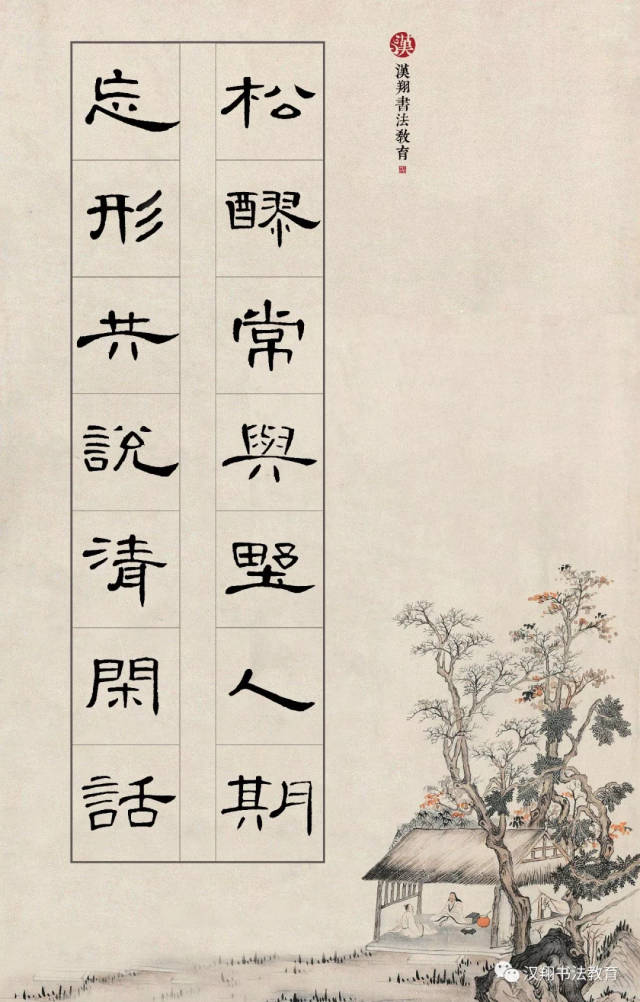 漢
漢翔书法教育
松醪常與野人期
忘形共說清閑話
汉翔书法教育